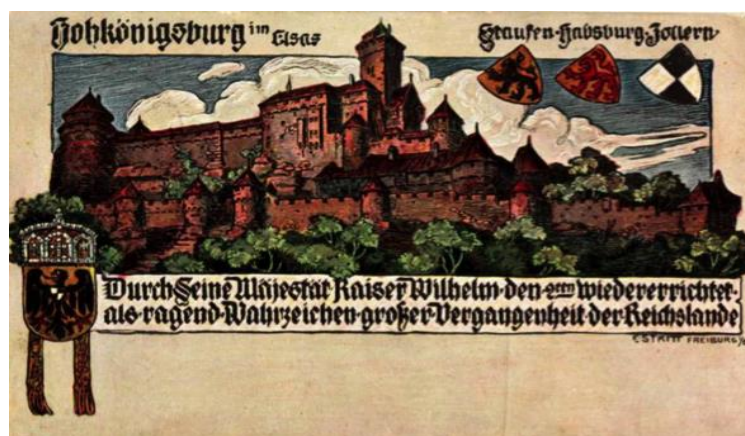 Hohkönigsburg im Elsas
Staufen·Habsburg·Zollern
Durch Seine Majestät Kaiser Wilhelm·den·2ten·wiedererrichtet·
als·ragend·Wahrzeichen·großer·Vergangenheit der Reichslande
C.STRITT FREIBURG